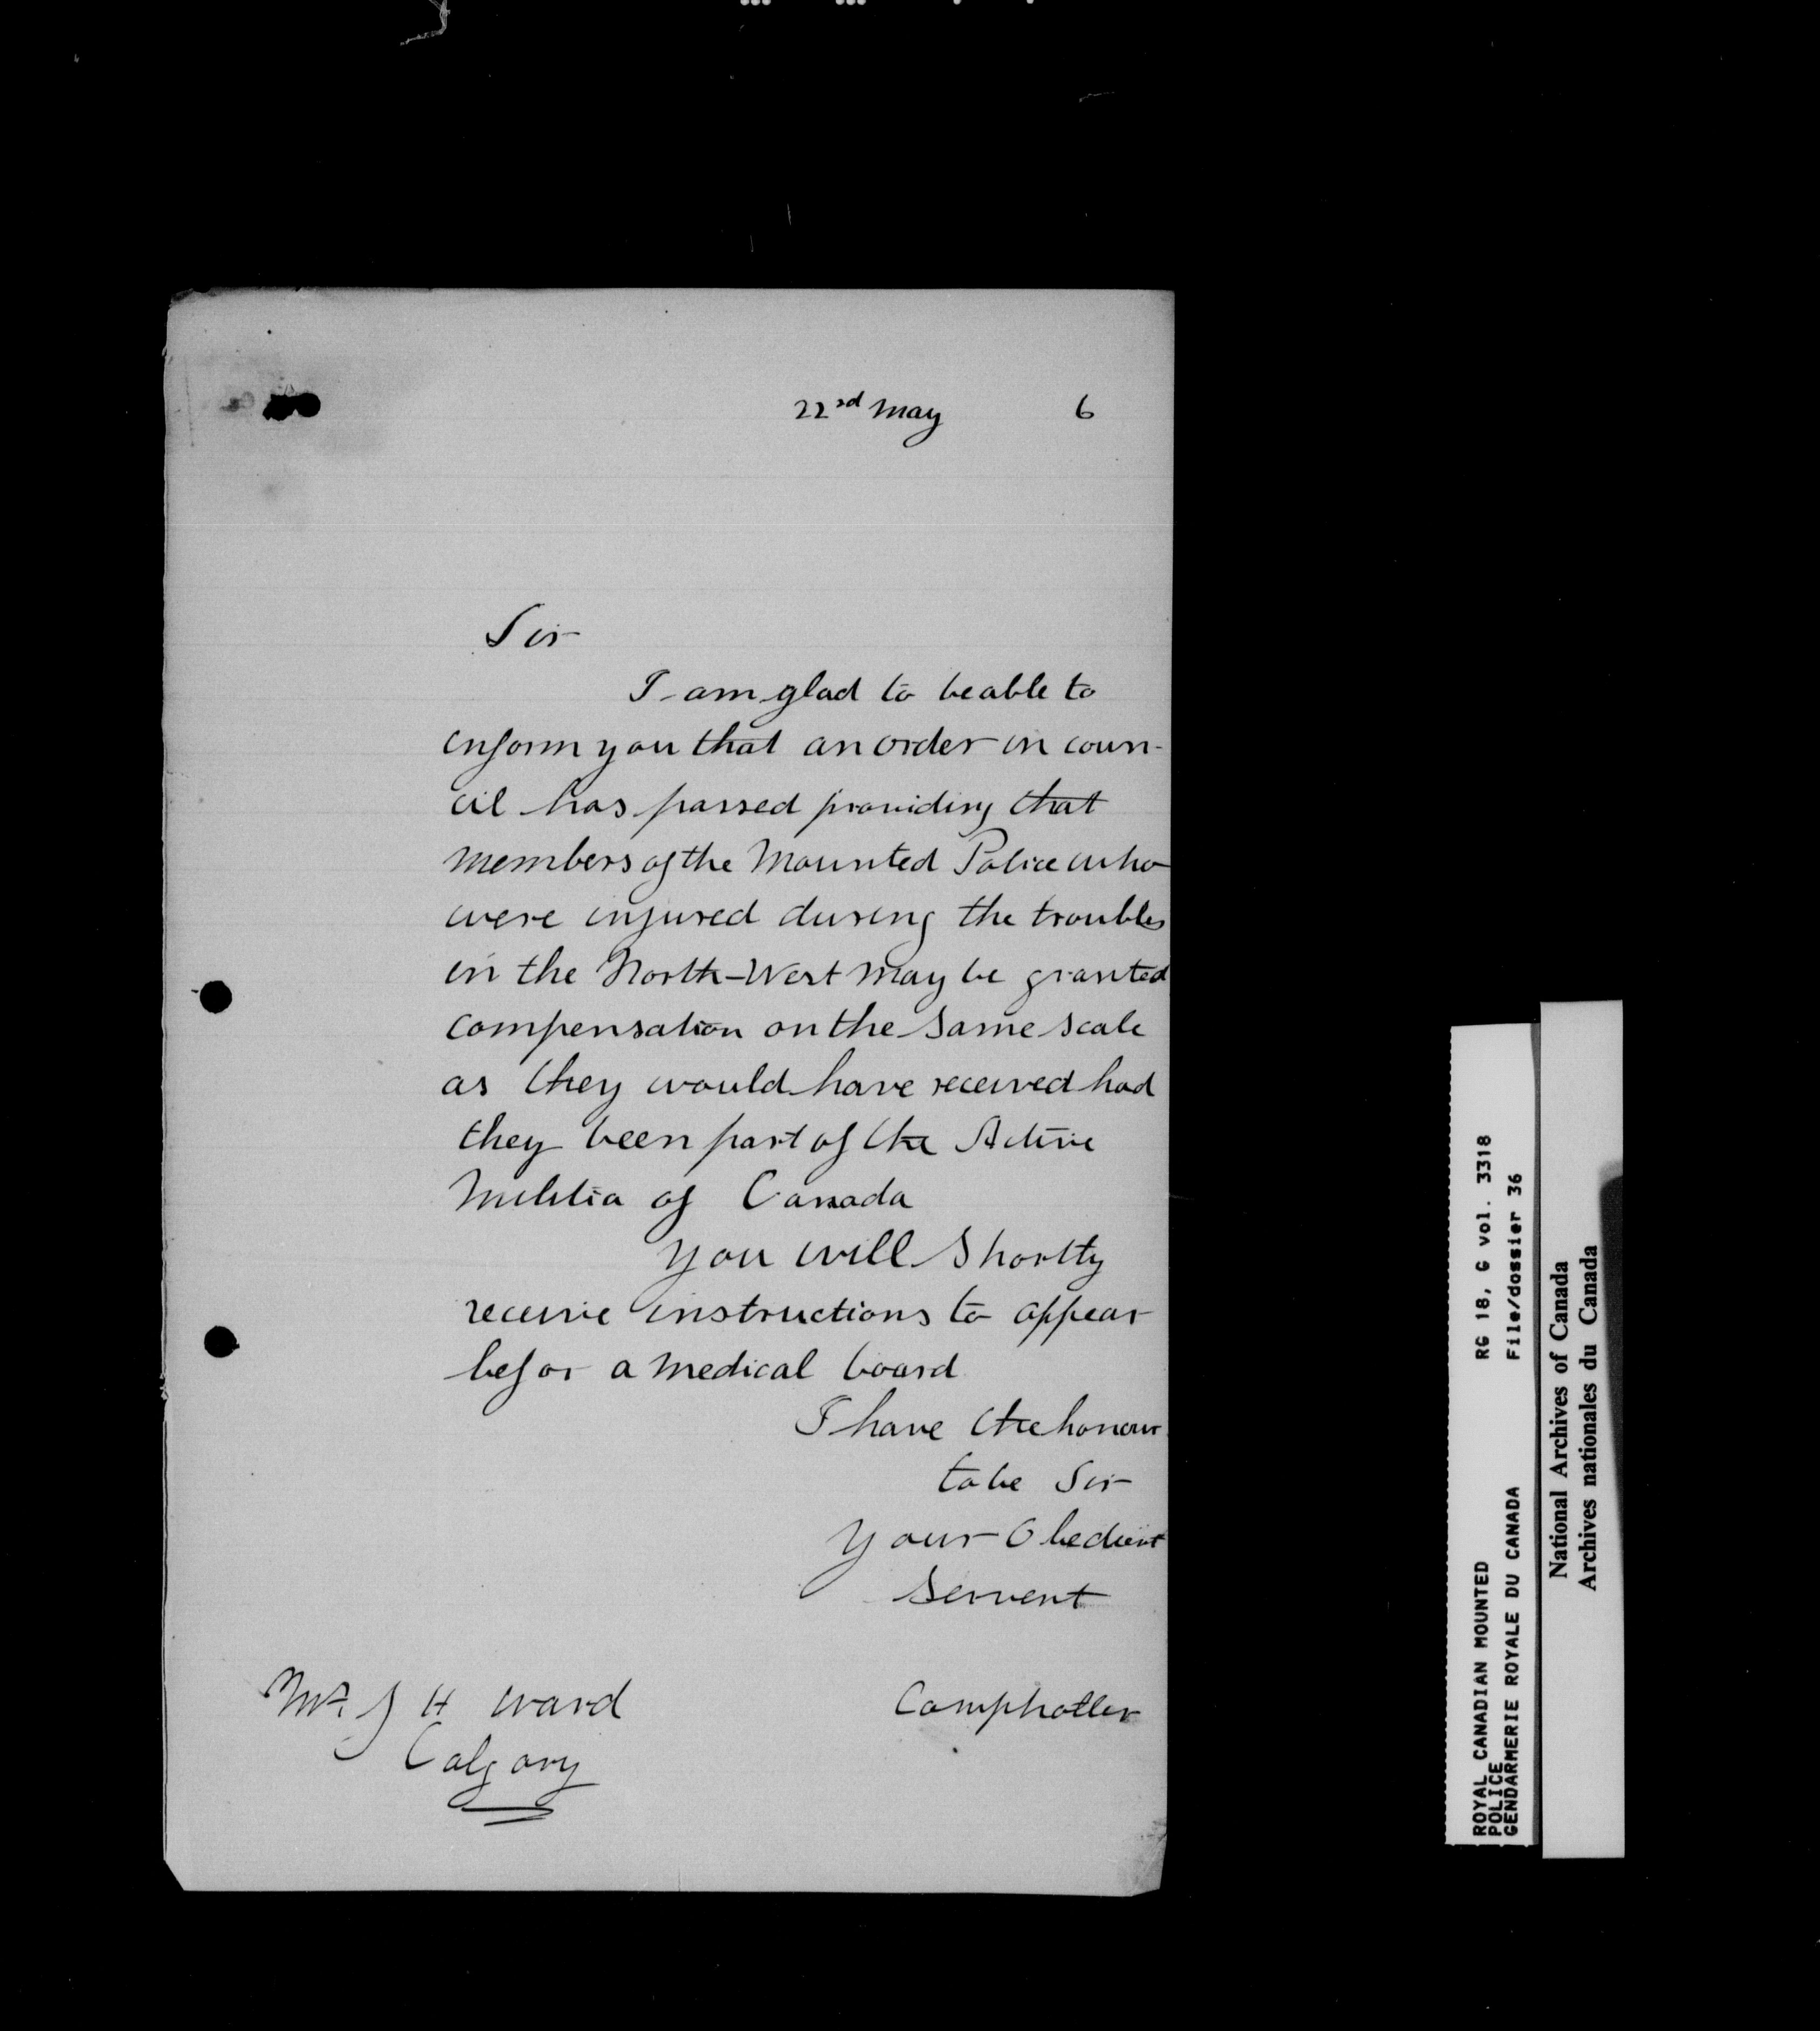 22nd May 6
Sir
I am glad to be able to
inform you that an order in coun-
cil has passed providing that
members of the Mounted Police who
were injured during the troubles
in the North-West may be granted
compensation on the same scale
as they would have received had
they been part of the Active
Militia of Canada
You will shortly
receive instructions to appear
befor a medical board
I have the honour
to be Sir
Your Obedient
Servent
Mr. J H Ward
Calgary
Comphotler
ROYAL CANADIAN MOUNTED RG 18, G vol. 3318
POLICE
GENDARMERIE ROYALE DU CANADA File/dossier 36
National Archives of Canada
Archives nationales du Canada